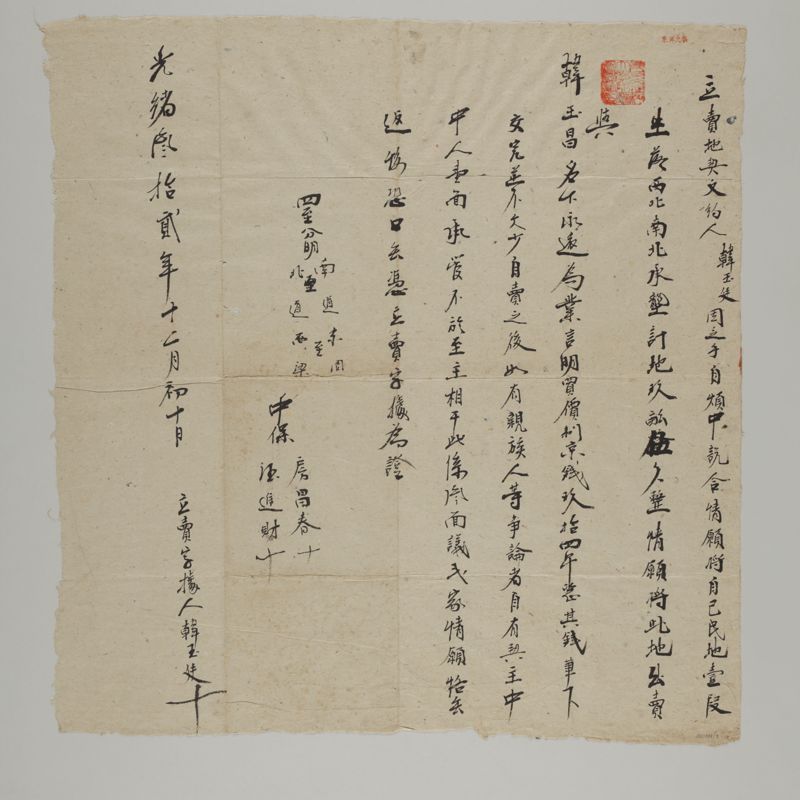 立賣地契文約人韓玉廷因乏手自煩中說合情願將自己民地壹段
坐落西北南北承墾計地玖畝伍分整情願將此地出賣
與
韓玉昌名下永遠為業言明買價州京錢玖拾四千整其錢筆下
交完並不欠少自賣之後如有親族人等爭論者自有契主中
中人壹面承管不於至主相干此係叁面議弍家情願恪無
返悔恐口無憑立賣字據為證
四至分明
南至道
北至道
東至周
西至梁
中保
房昌春十
張進財十
光緒叁拾貳年十二月初十日
立賣字據人韓玉廷十